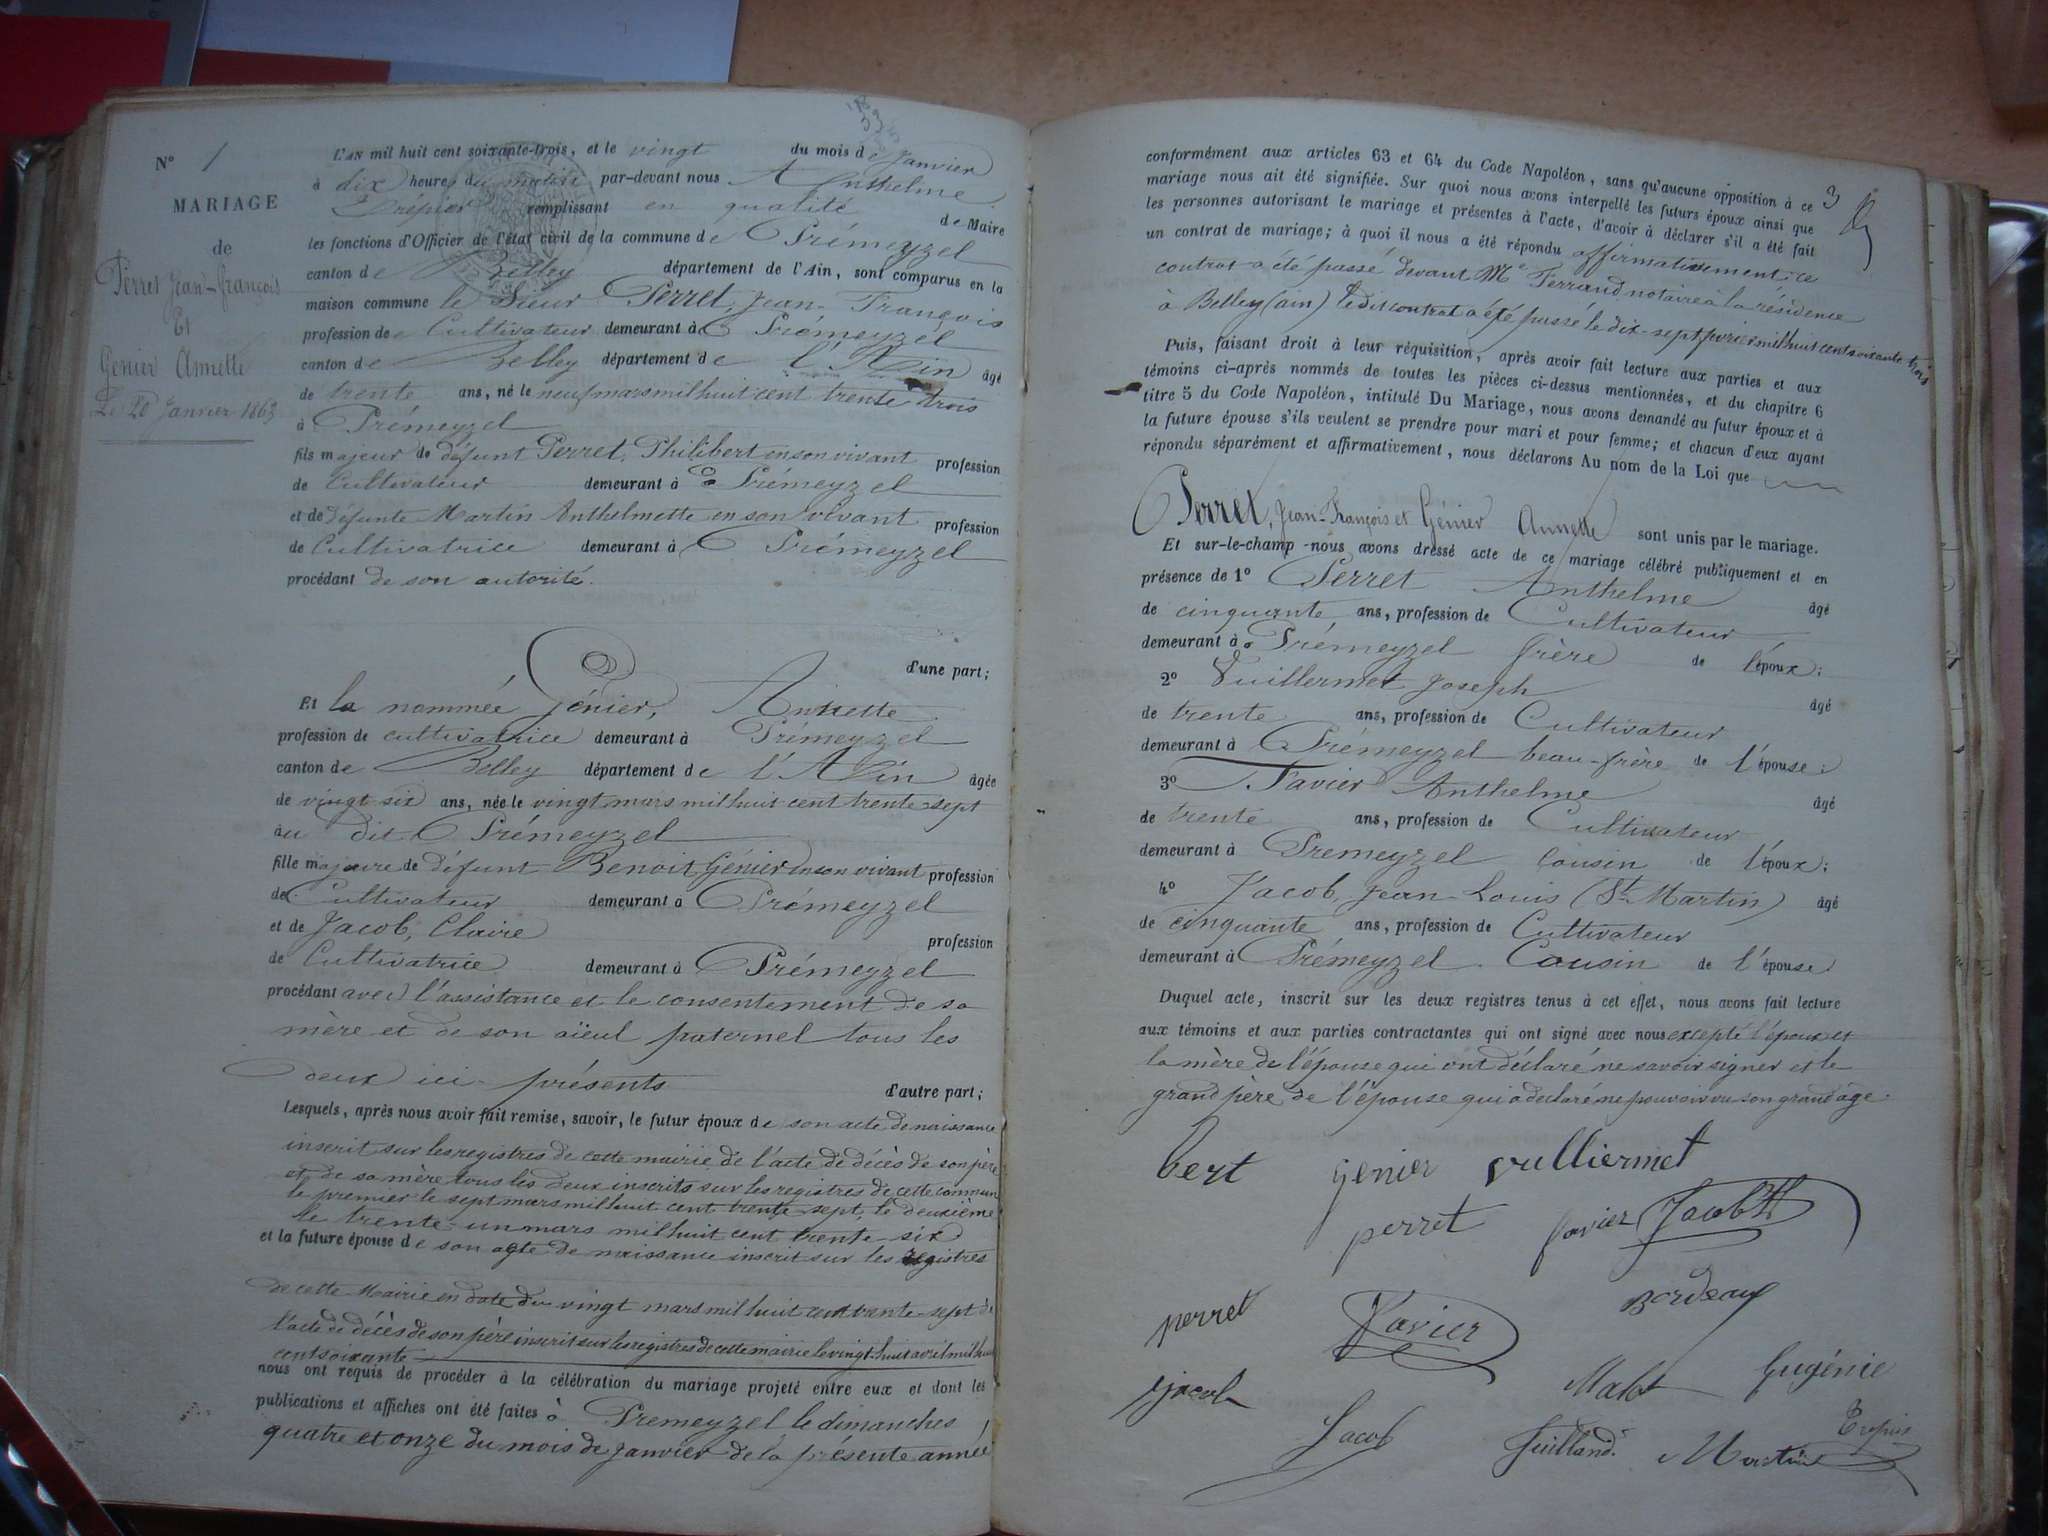 N° 1
MARIAGE
de
Perret Jean-françois
Et
Génier Annette
Le 20 Janvier 1863
L'AN mil huit cent soixante-trois, et le vingt du mois de Janvier
à dix heures du matin par-devant nous Anthelme
Trépier remplissant en qualité de Maire
les fonctions d'Officier de l'état civil de la commune de Prémeyzel
canton de Belley département de l'Ain, sont comparus en la
maison commune le Sieur Perret, Jean-François
profession de Cultivateur demeurant à Prémeyzel
canton de Belley département de l'Ain âgé
de trente ans, né le neuf mars mil huit cent trente trois
à Prémeyzel
fils majeur de défunt Perret, Philibert en son vivant profession
de Cultivateur demeurant à Prémeyzel
et de défunte Martin Anthelmette en son vivant profession
de Cultivatrice demeurant à Prémeyzel
procédant de son autorité.
d'une part;
Et la nommée Génier, Annette
profession de cultivatrice demeurant à Prémeyzel
canton de Belley département de l'Ain âgée
de vingt six ans, née le vingt mars mil huit cent trente-sept
au dit Prémeyzel
fille majeure de défunt Benoit Génier en son vivant profession
de Cultivateur demeurant à Prémeyzel
et de Jacob, Claire profession
de Cultivatrice demeurant à Prémeyzel
procédant avec l'assistance et le consentement de sa
mère et de son aïeul paternel tous les
deux ici présents d'autre part;
Lesquels, après nous avoir fait remise, savoir, le futur époux de son acte de naissance
inscrit sur les registres de cette mairie de l'acte de décès de son père
et de sa mère tous les deux inscrits sur les registres de cette commune
le premier le sept mars mil huit cent trente-sept, le deuxième
le trente-un mars mil huit cent trente-six
et la future épouse de son acte de naissance inscrit sur les registres
de cette Mairie en date du vingt mars mil huit cent trente-sept de
l'acte de décès de son père inscrit sur les registres de cette mairie le vingt-huit avril mil huit
cent soixante
nous ont requis de procéder à la célébration du mariage projeté entre eux et dont les
publications et affiches ont été faites à Premeyzel le dimanches
quatre et onze du mois de janvier de la présente année
3
conformément aux articles 63 et 64 du Code Napoléon, sans qu'aucune opposition à ce
mariage nous ait été signifiée. Sur quoi nous avons interpellé les futurs époux ainsi que
les personnes autorisant le mariage et présentes à l'acte, d'avoir à déclarer s'il a été fait
un contrat de mariage; à quoi il nous a été répondu affirmativement; ce
contrat a été passé devant Me Ferrand notaire à la résidence
à Belley (ain) le dit contrat a été passé le dix-sept janvier mil huit cent soixante trois
Puis, faisant droit à leur réquisition, après avoir fait lecture aux parties et aux
témoins ci-après nommés de toutes les pièces ci-dessus mentionnées, et du chapitre 6
titre 5 du Code Napoléon, intitulé Du Mariage, nous avons demandé au futur époux et à
la future épouse s'ils veulent se prendre pour mari et pour femme; et chacun d'eux ayant
répondu séparément et affirmativement, nous déclarons Au nom de la Loi que
Perret, Jean-François et Génier Annette sont unis par le mariage.
Et sur-le-champ nous avons dressé acte de ce mariage célébré publiquement et en
présence de 1° Perret Anthelme âgé
de cinquante ans, profession de Cultivateur
demeurant à Prémeyzel frère de l'époux;
2° Vuillermet Joseph âgé
de trente ans, profession de Cultivateur
demeurant à Prémeyzel beau-frère de l'épouse;
3° Favier Anthelme âgé
de trente ans, profession de Cultivateur
demeurant à Premeyzel Cousin de l'époux;
4° Jacob, Jean-Louis (St Martin) âgé
de cinquante ans, profession de Cultivateur
demeurant à Prémeyzel. Cousin de l'épouse
Duquel acte, inscrit sur les deux registres tenus à cet effet, nous avons fait lecture
aux témoins et aux parties contractantes qui ont signé avec nous excepté l'époux et
la mère de l'épouse qui ont déclaré ne savoir signer et le
grand père de l'épouse qui a déclaré ne pouvoir vu son grand âge.
bert genier vulliermet
perret favier Jacob
perret Favier Bordeaux
jacob Malet Eugénie
Jacob Juilland Martin Trepier